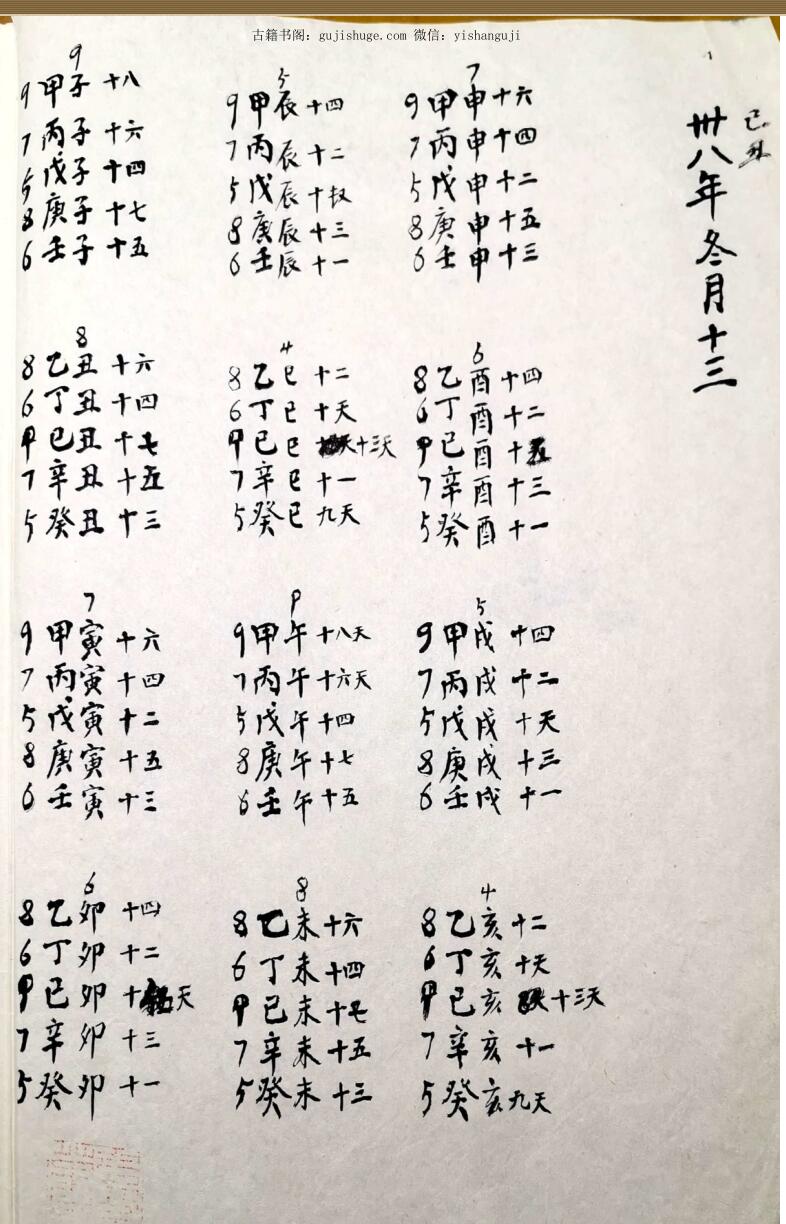 古籍书阁: gujishuge.com 微信: yishanguji
己丑
卅八年冬月十三
9
9 甲子 十八
7 丙子 十六
5 戊子 十四
8 庚子 十七
6 壬子 十五
8
8 乙丑 十六
6 丁丑 十四
甲 巳丑 十七
7 辛丑 十五
5 癸丑 十三
7
9 甲寅 十六
7 丙寅 十四
5 戊寅 十二
8 庚寅 十五
6 壬寅 十三
6
8 乙卯 十四
6 丁卯 十二
甲 巳卯 十 天
7 辛卯 十三
5 癸卯 十一
5
9 甲辰 十四
7 丙辰 十二
5 戊辰 十
8 庚辰 十三
6 壬辰 十一
4
8 乙巳 十二
6 丁巳 十天
甲 巳巳 十三天
7 辛巳 十一
5 癸巳 九天
9 甲午 十八天
7 丙午 十六天
5 戊午 十四
8 庚午 十七
6 壬午 十五
8
8 乙未 十六
6 丁未 十四
甲 巳未 十七
7 辛未 十五
5 癸未 十三
7
9 甲申 十六
7 丙申 十四
5 戊申 十二
8 庚申 十五
6 壬申 十三
6
8 乙酉 十四
6 丁酉 十二
甲 巳酉 十五
7 辛酉 十三
5 癸酉 十一
5
9 甲戌 十四
7 丙戌 十二
5 戊戌 十天
8 庚戌 十三
6 壬戌 十一
4
8 乙亥 十二
6 丁亥 十天
甲 巳亥 十三天
7 辛亥 十一
5 癸亥 九天